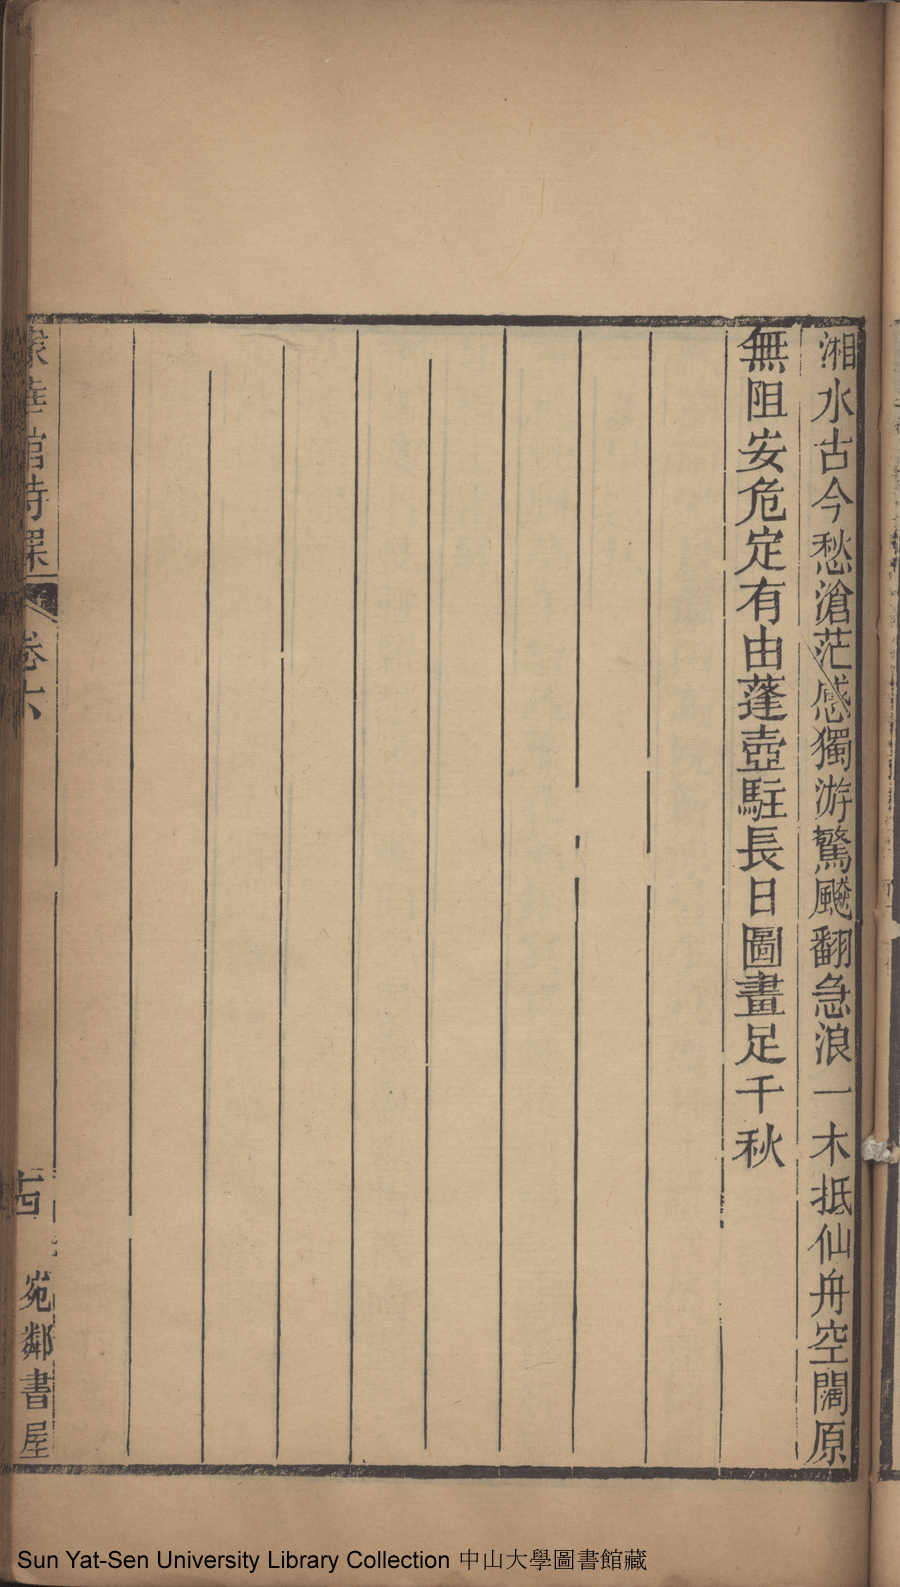 湘水古今愁滄茫感獨游驚飈翻急浪一木抵仙舟空闊原
無阻安危定有由蓬壺駐長日圖畫足千秋
館詩課
卷六
十四
宛鄰書屋
Sun Yat-Sen University Library Collection 中山大學圖書館藏